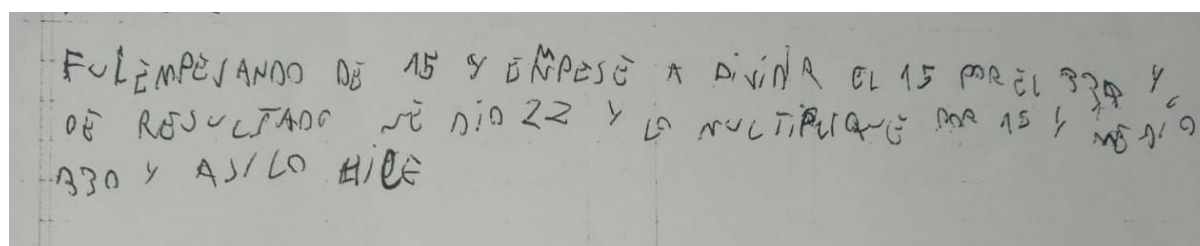 FUI EMPESANDO DE 15 Y EMPESE A DIVIDIR EL 15 POR EL 330 Y
DE RESULTADO ME DIO 22 Y LO MULTIPLIQUE POR 15 Y ME DIO
330 Y ASI LO HICE